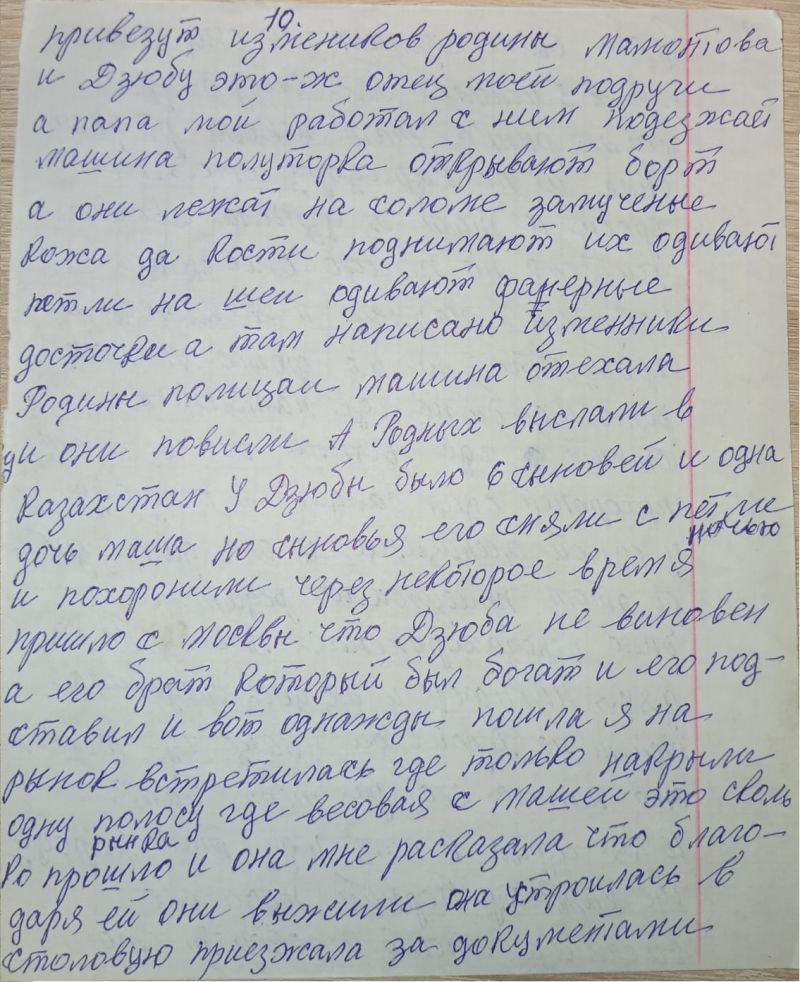 10
привезут изменников родины Мамонтова
и Дзюбу это-ж отец моей подруги
а папа мой работал с ним подезжает
машина полуторка открывают борт
а они лежат на соломе замученые
кожа да кости поднимают их одивают
петли на шеи одивают фанерные
досточки а там написано Изменники
Родины полицаи машина отехала
и они повисли А Родных выслали в
Казахстан У Дзюбы было 6 сыновей и одна
дочь Маша но сыновья его сняли с петли
ночью
и похоронили через некоторое время
пришло с Москвы что Дзюба не виновен
а его брат который был богат и его под-
ставил и вот однажды пошла я на
рынок встретилась где только накрыли
одну полосу где весовая с Машей это сколь
рынка
ко прошло и она мне расказала что благо-
даря ей они выжили она устроилась в
столовую приезжала за документами